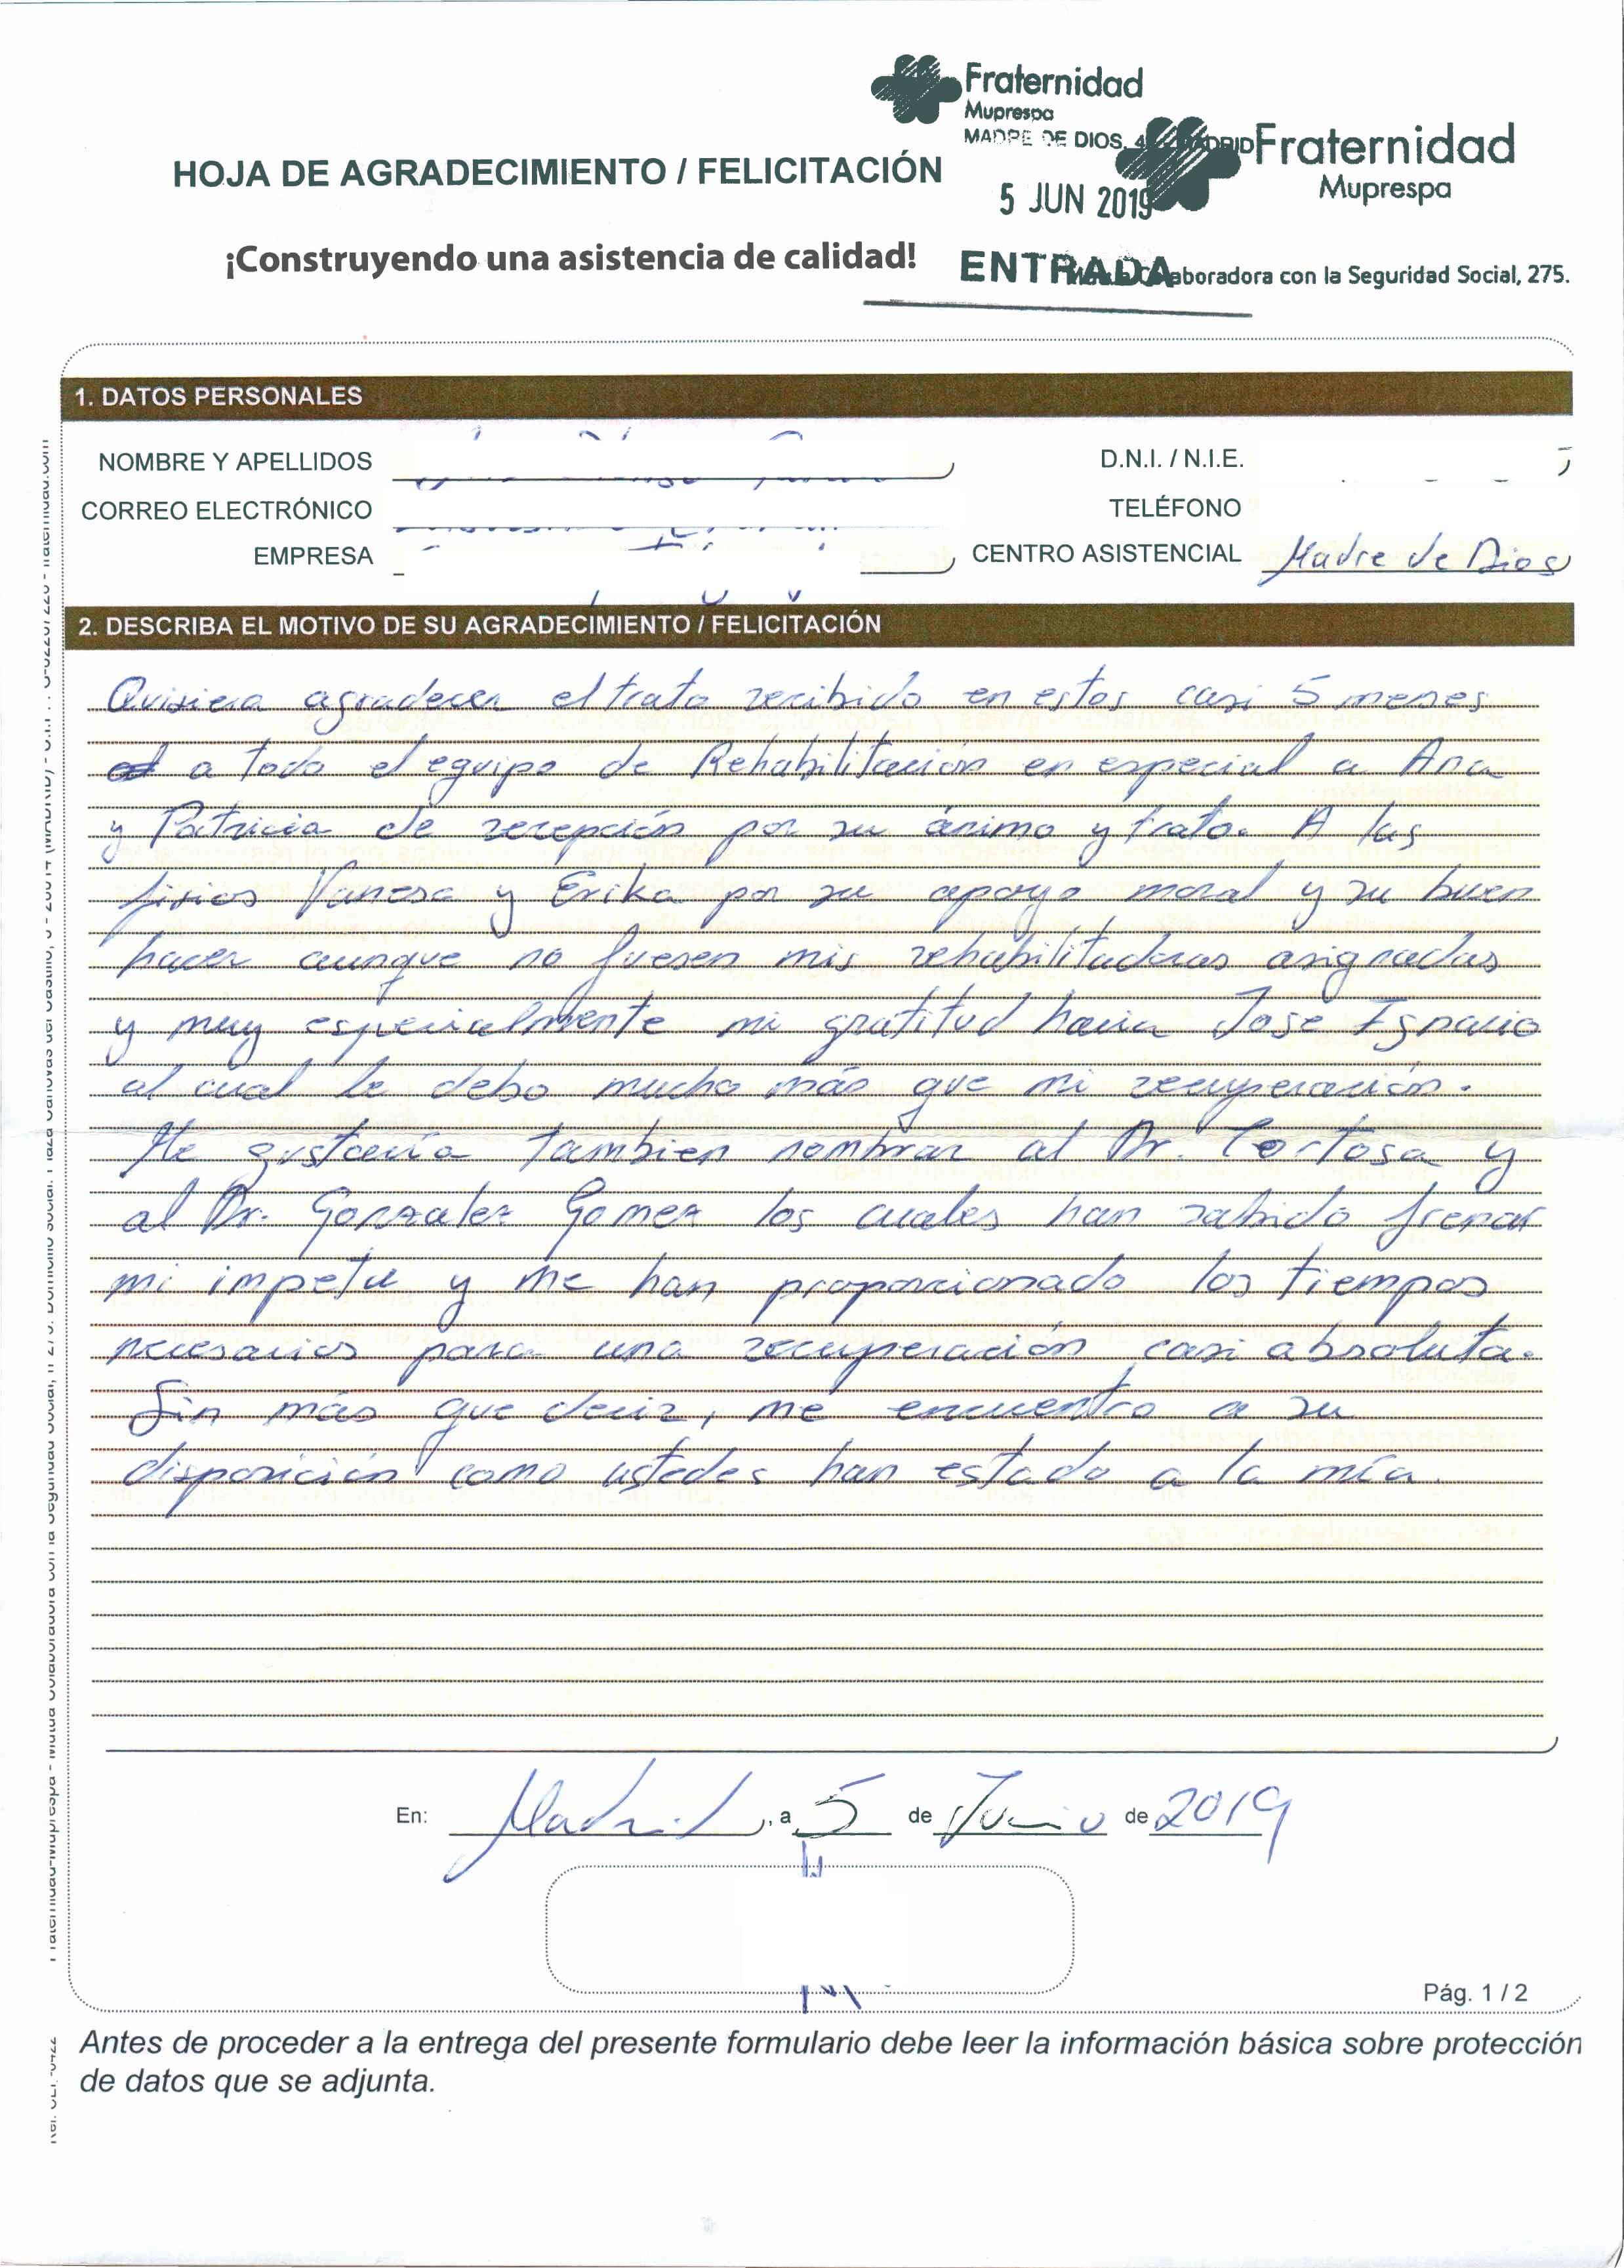 Fraternidad
Muprespa
MADRE DE DIOS, 4
HOJA DE AGRADECIMIENTO / FELICITACIÓN
Fraternidad
Muprespa
5 JUN 2019
¡Construyendo una asistencia de calidad!
ENTRADA
Colaboradora con la Seguridad Social, 275.
1. DATOS PERSONALES
NOMBRE Y APELLIDOS
D.N.I. / N.I.E.
CORREO ELECTRÓNICO
TELÉFONO
EMPRESA
CENTRO ASISTENCIAL Madre de Dios
2. DESCRIBA EL MOTIVO DE SU AGRADECIMIENTO / FELICITACIÓN
Quisiera agradecer el trato recibido en estos casi 5 meses
a todo el equipo de Rehabilitación en especial a Ana
y Patricia de recepción por su ánimo y trato. A las
fisios Vanesa y Erika por su apoyo moral y su buen
hacer aunque no fuesen mis rehabilitadoras asignadas
y muy especialmente mi gratitud hacia Jose Ignacio
al cual le debo mucho más que mi recuperación.
Me gustaría tambien nombrar al Dr. Cortosa y
al Dr. Gonzalez Gomez los cuales han sabido frenar
mi impetu y me han proporcionado los tiempos
necesarios para una recuperación casi absoluta.
Sin más que decir, me encuentro a su
disposición como ustedes han estado a la mía.
En: Madrid, a 5 de Junio de 2019
Pág. 1 / 2
Antes de proceder a la entrega del presente formulario debe leer la información básica sobre protección
de datos que se adjunta.